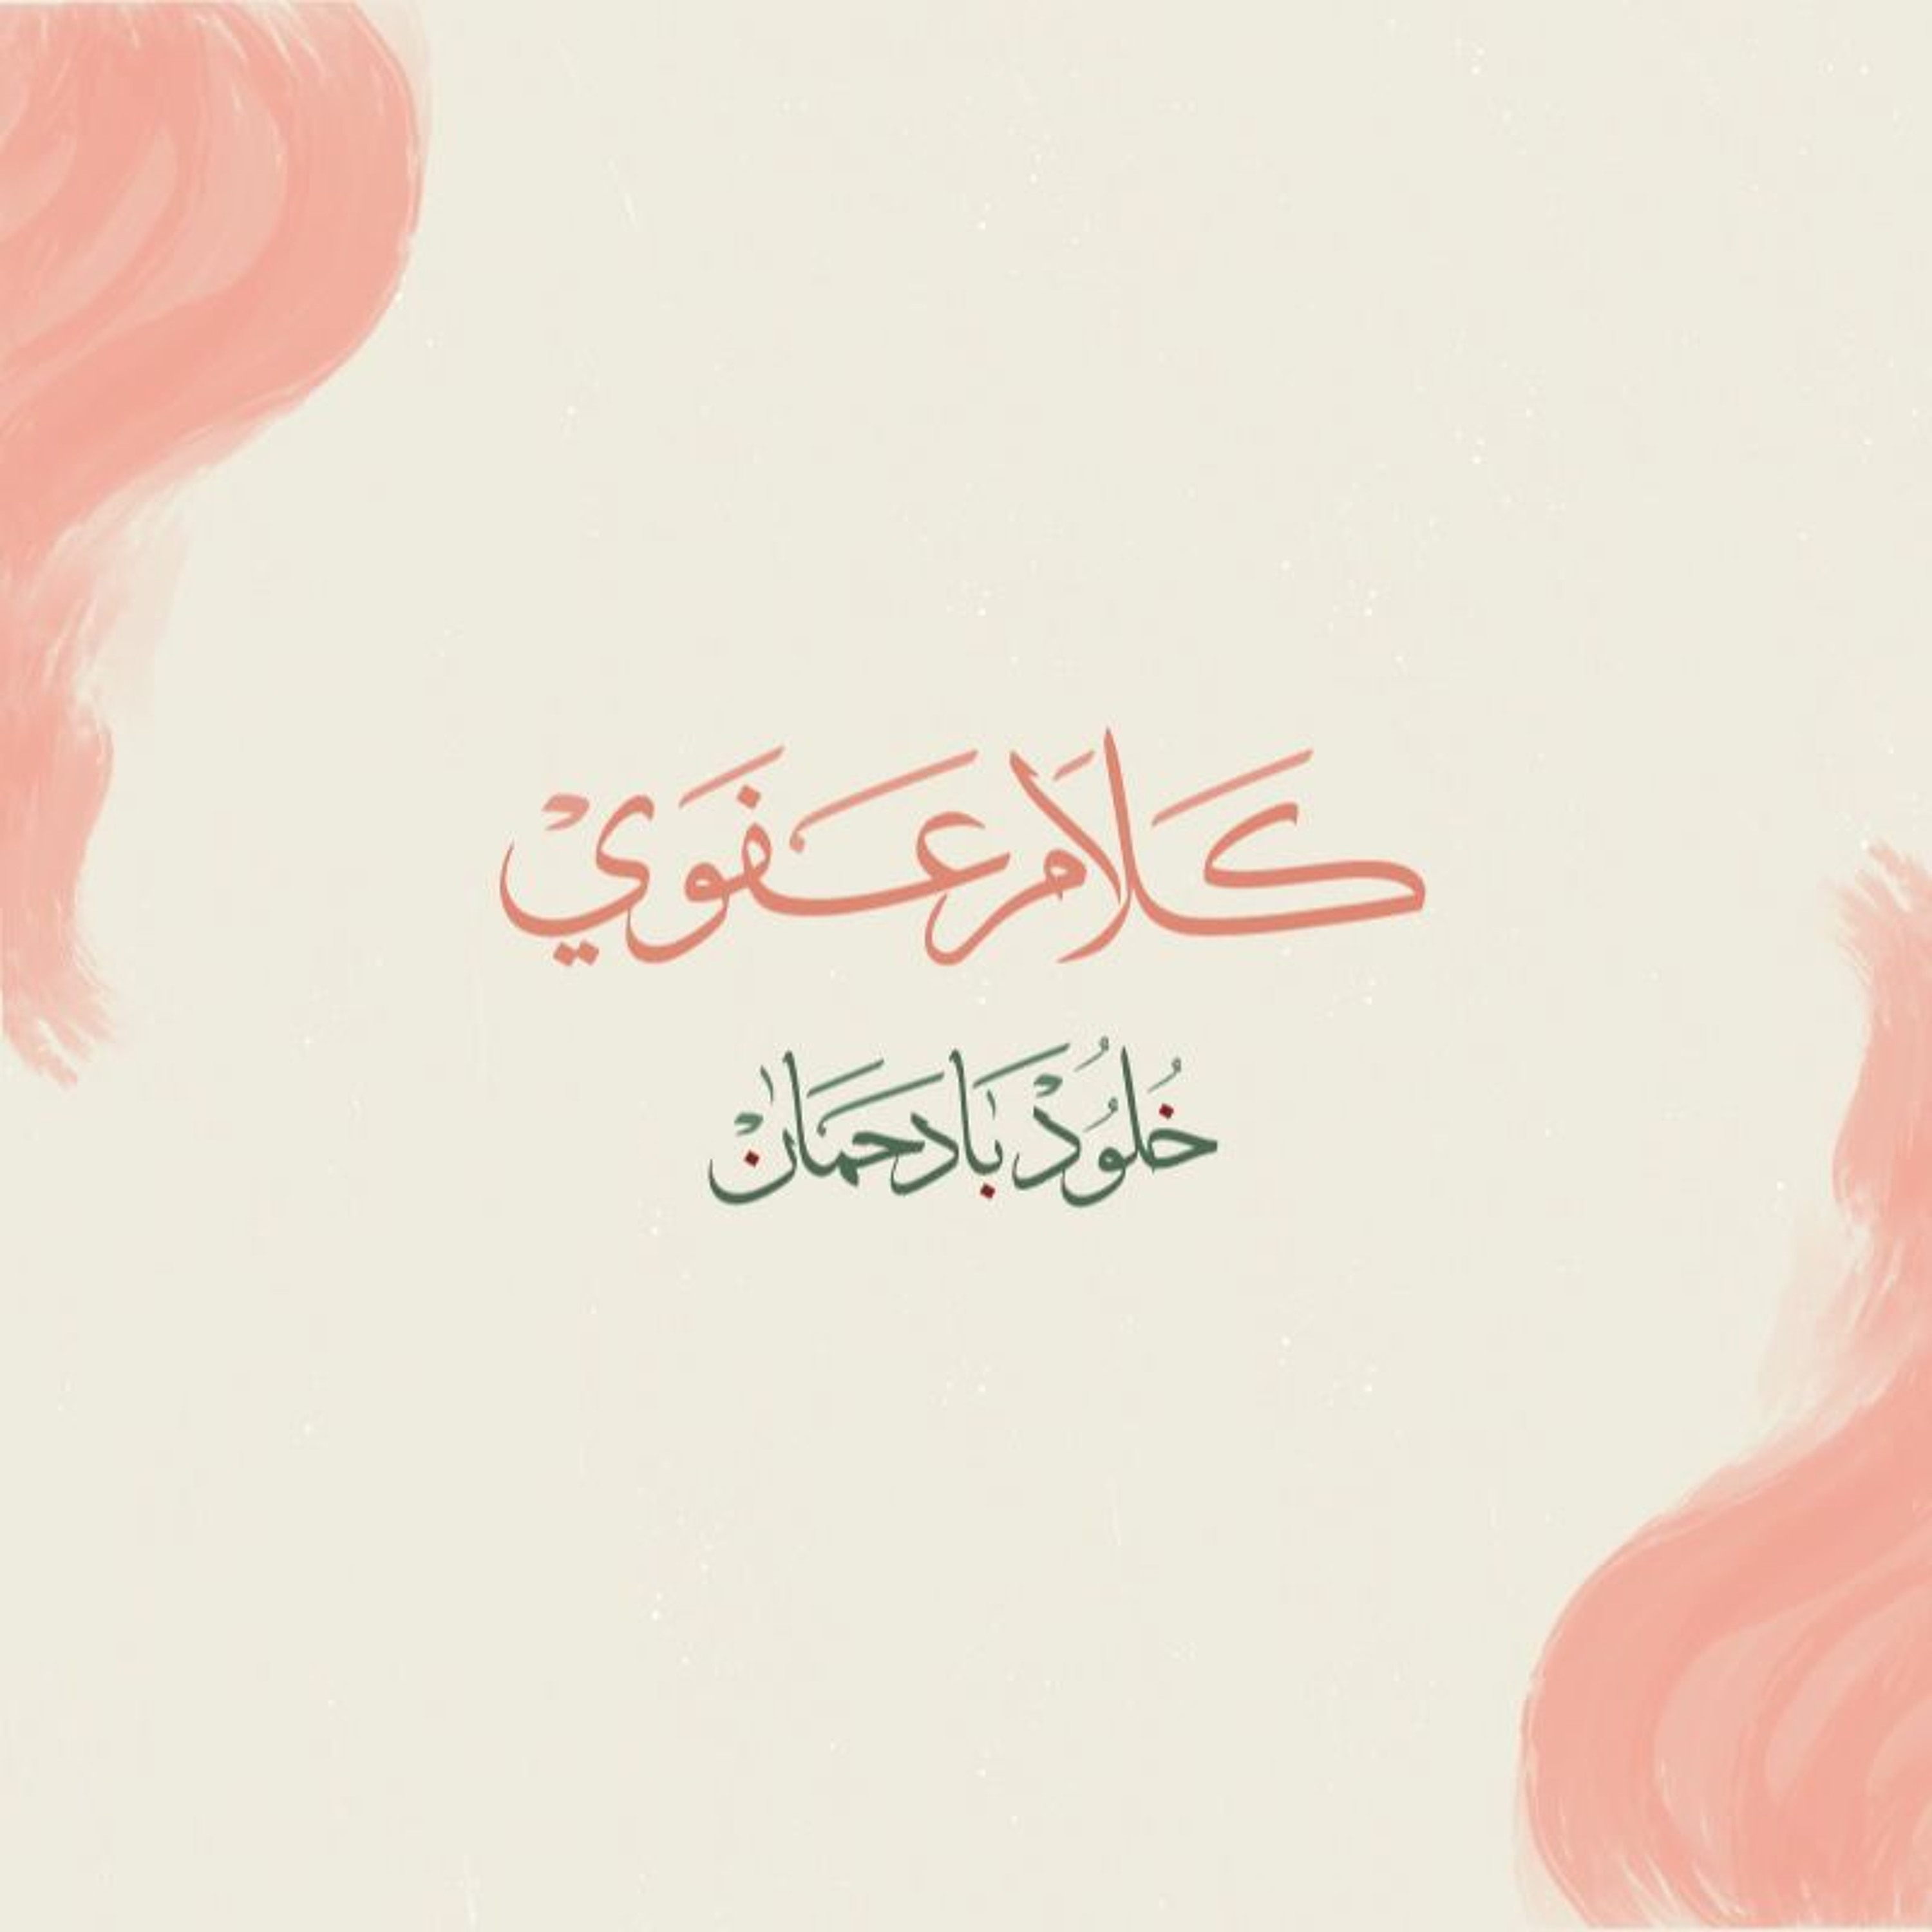 كَلَامْ عَفَوِيْ
خُلُودْ بَادَحمَانْ